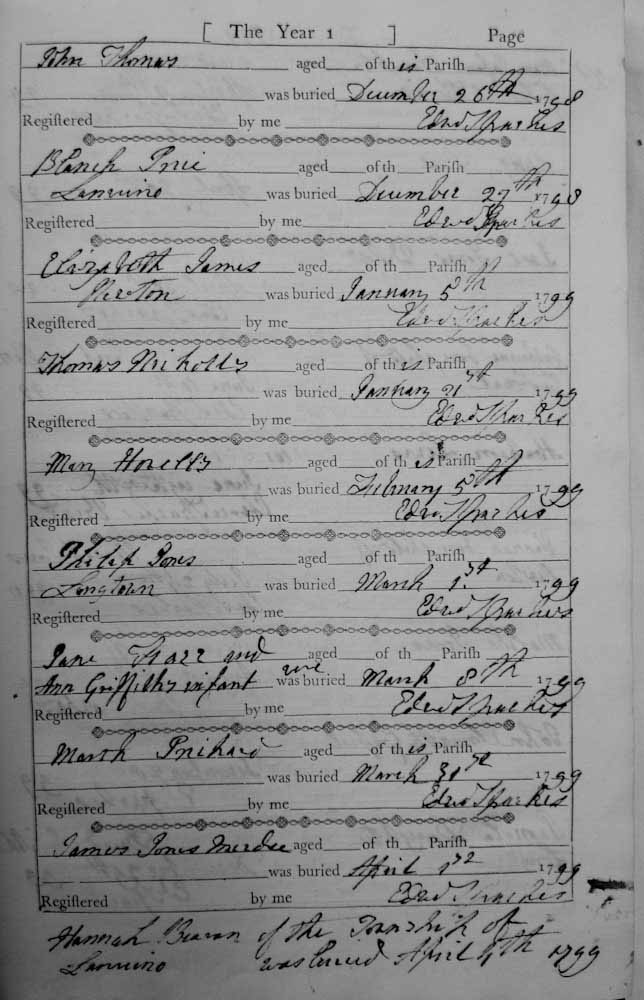 [ The Year 1 ] Page
John Thomas aged of this Parish
was buried December 26th 1798
Registered by me Edwd Sparkes
Blanch Price aged of th Parish
Lanvino was buried December 27th 1798
Registered by me Edwd Sparkes
Elizabeth James aged of th Parish
Newton was buried January 5th 1799
Registered by me Edwd Sparkes
Thomas Nicholls aged of this Parish
was buried January 31st 1799
Registered by me Edwd Sparkes
Mary Howells aged of this Parish
was buried February 5th 1799
Registered by me Edwd Sparkes
Philip Jones aged of th Parish
Longtown was buried March 1st 1799
Registered by me Edwd Sparkes
Jane and aged of th Parish
Ann Griffiths infant were was buried March 8th 1799
Registered by me Edwd Sparkes
Marth Prichard aged of this Parish
was buried March 31st 1799
Registered by me Edwd Sparkes
James Jones aged of th Parish
was buried April 1799
Registered by me Edwd Sparkes
Hannah Beavan of the Township of
Lanvino was buried April 4th 1799